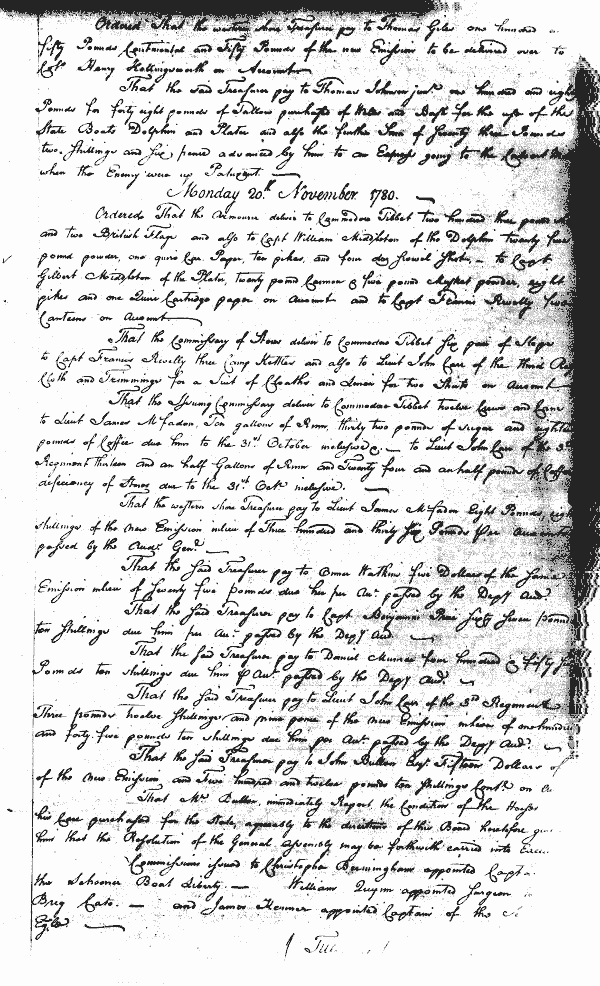 Ordered That the western shore Treasurer pay to Thomas Giles one hundred
fifty Pounds Continental and Fifty Pounds of the new Emission to be delivered over to
Colo Henry Hollingsworth on Account
That the said Treasurer pay to Thomas Johnson junr one hundred and eighty
Pounds for forty eight pounds of Tallow purchased of and for the use of the
State Boats Dolphin and Plater and also the further Sum of Seventy three Pounds
two Shillings and Six pence advanced by him to an Express going to the
when the Enemy were up Patuxent.
Monday 20th November 1780.
Ordered That the Armourer deliver to Commodore Tibbet two hundred three pound
and two British Flags and also to Capt William Middleton of the Dolphin twenty five
pound powder, one quire Car. Paper, ten pikes, and four doz. Shott, – to Capt
Gilbert Middleton of the Plater, twenty pound Cannon & five pound Musket powder, eight
pikes and one Quire Cartridge paper on Account and to Capt Francis Revelly
Canteens on Account
That the Commissary of Stores deliver to Commodore Tibbet Six pair of
to Capt Francis Revelly three Camp Kettles and also to Lieut John Carr of the third Reg
Cloth and Trimmings for a Suit of Cloaths and Linen for two Shirts on Account
That the Issuing Commissary deliver to Commodore Tibbet twelve
to Lieut James McFadon, Ten gallons of Rum, thirty two pounds of sugar and eighteen
pounds of Coffee due him to the 31st October inclusive. – to Lieut John Carr of the 3d
Regiment thirteen and an half Gallons of Rum and Twenty four and an half pound of Coffee
deficiency of Stores due to the 31st Octr inclusive.
That the western shore Treasurer pay to Lieut James McFadon Eight Pounds, eight
shillings of the new Emission in lieu of Three hundred and thirty Six Pounds per Account
passed by the Audr Genl.
That the said Treasurer pay to Watkins five Dollars of the same
Emission in lieu of Seventy five pounds due per Act passed by the Depy Audr
That the said Treasurer pay to Capt Benjamin Price Sixty Seven Pounds
ten Shillings due him per Act passed by the Depy Audr
That the said Treasurer pay to Daniel four hundred & fifty
Pounds ten shillings due him Act passed by the Depy Audr.
That the said Treasurer pay to Lieut John Carr of the 3d Regiment
Three pounds twelve Shillings and nine pence of the new Emission in lieu of one hundred
and forty five pounds ten shillings due him per Act passed by the Depy Audr.
That the said Treasurer pay to John Bullen Esqr Fifteen Dollars of
of the new Emission and Two hundred and twelve pounds ten shillings Contl on
That Mr Bullen, immediately Report the Condition of the
his Care purchased for the State, agreeably to the directions of this Board heretofore
him that the Resolution of the General Assembly may be forthwith carried into
Commissions issued to Christopher Bermingham appointed Capt
the Schooner Boat Liberty. – William appointed Surgeon
Brig Cato. – and James appointed Captain of the